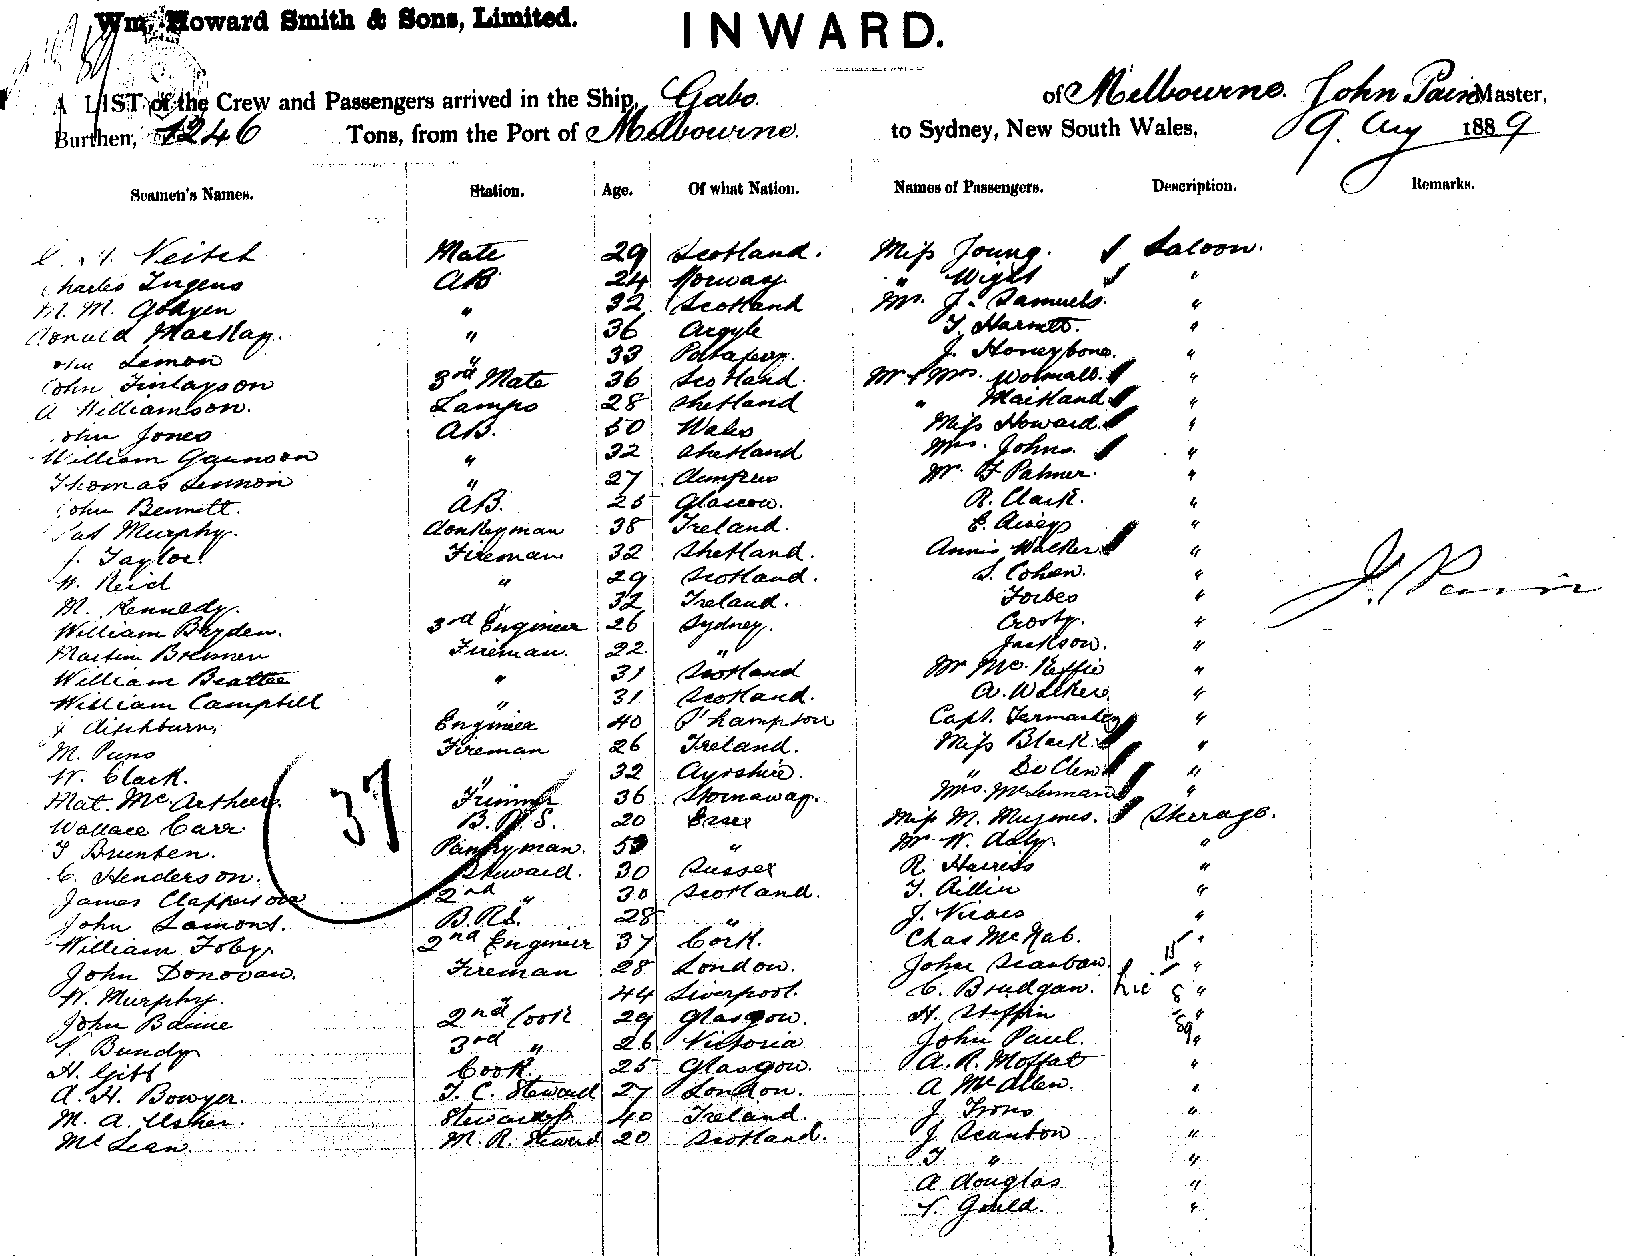 Wm. Howard Smith & Sons, Limited.
INWARD.
A LIST of the Crew and Passengers arrived in the Ship, Gabo. of Melbourne. John Pain Master,
Burthen, 1246 Tons, from the Port of Melbourne. to Sydney, New South Wales, 9. Aug 1889
Seamen's Names. Station. Age. Of what Nation. Names of Passengers. Description. Remarks.
Veitch Mate 29 Scotland. Miss Young. Saloon.
Charles Ingens AB 24 Norway " Wight "
M. M. Gobyen " 32 Scotland Mr. J. Samuels. "
Donald Mackay. " 36 Argyle T. Harnett. "
John Lemon " 33 J. Honeybone. "
John Finlayson 3rd Mate 36 Scotland. Mr & Mrs. Wolmall. "
A Williamson. Lamps 28 Shetland " Maitland "
John Jones AB. 50 Wales Miss Howard "
William Gaunson " 32 Shetland Mrs. Johns. "
Thomas Lennon " 27 Mr. F Palmer. "
John Bennett. AB. 25 Glascow. R. Clark. "
Pat Murphy. Donkeyman 38 Ireland. E. Airey "
J. Taylor. Fireman 32 Shetland. Annie Walker "
W. Reid " 29 Scotland. S. Cohen. "
M. Kennedy. " 32 Ireland. Forbes "
William Bryden. 3rd Engineer 26 Sydney. Crosby. "
Martin Brennen Fireman. 22 " Jackson. "
William Beattie " 31 Scotland Mr Mc. Keffie "
William Campbell " 31 Scotland. A. Walker "
J Aischburn, Engineer 40 S'hampson Capt. "
M. Puno Fireman 26 Ireland. Miss Black. "
W. Clark. " 32 Ayrshire. " De Clen "
Mat. McArthur. Trimmer 36 Stornaway. Mrs. "
Wallace Carr B.R.S. 20 Essex Miss M. Steerage.
T Brunten. Pantryman. " Mr W. Daly. "
C. Henderson. Steward. 30 Sussex R. Harriss "
James Clapperson 2nd " 30 Scotland. T. Aillin "
John Lamont. B.R.S. 28 " J. "
William Toby. 2nd Engineer 37 Cork. Chas McNab. "
John Donovan. Fireman 28 London. John Scanton. "
W. Murphy. " 44 Liverpool. C. Brudgan. "
John Baine 2nd Cook 29 Glasgow. H. Steffin "
S. Bundy 3rd " 26 Victoria John Paul. "
H. Gibb Cook 25 Glasgow. A. R. Moffat "
A. H. Bowyer. F. C. Steward 27 London. A McAllen. "
M. A. Usher. Stewardess 40 Ireland. J Irons "
McLean. M. R. Steward 20 Scotland. J. Scanton "
T " "
A Douglas "
S. Gould. "
37
J. Pain